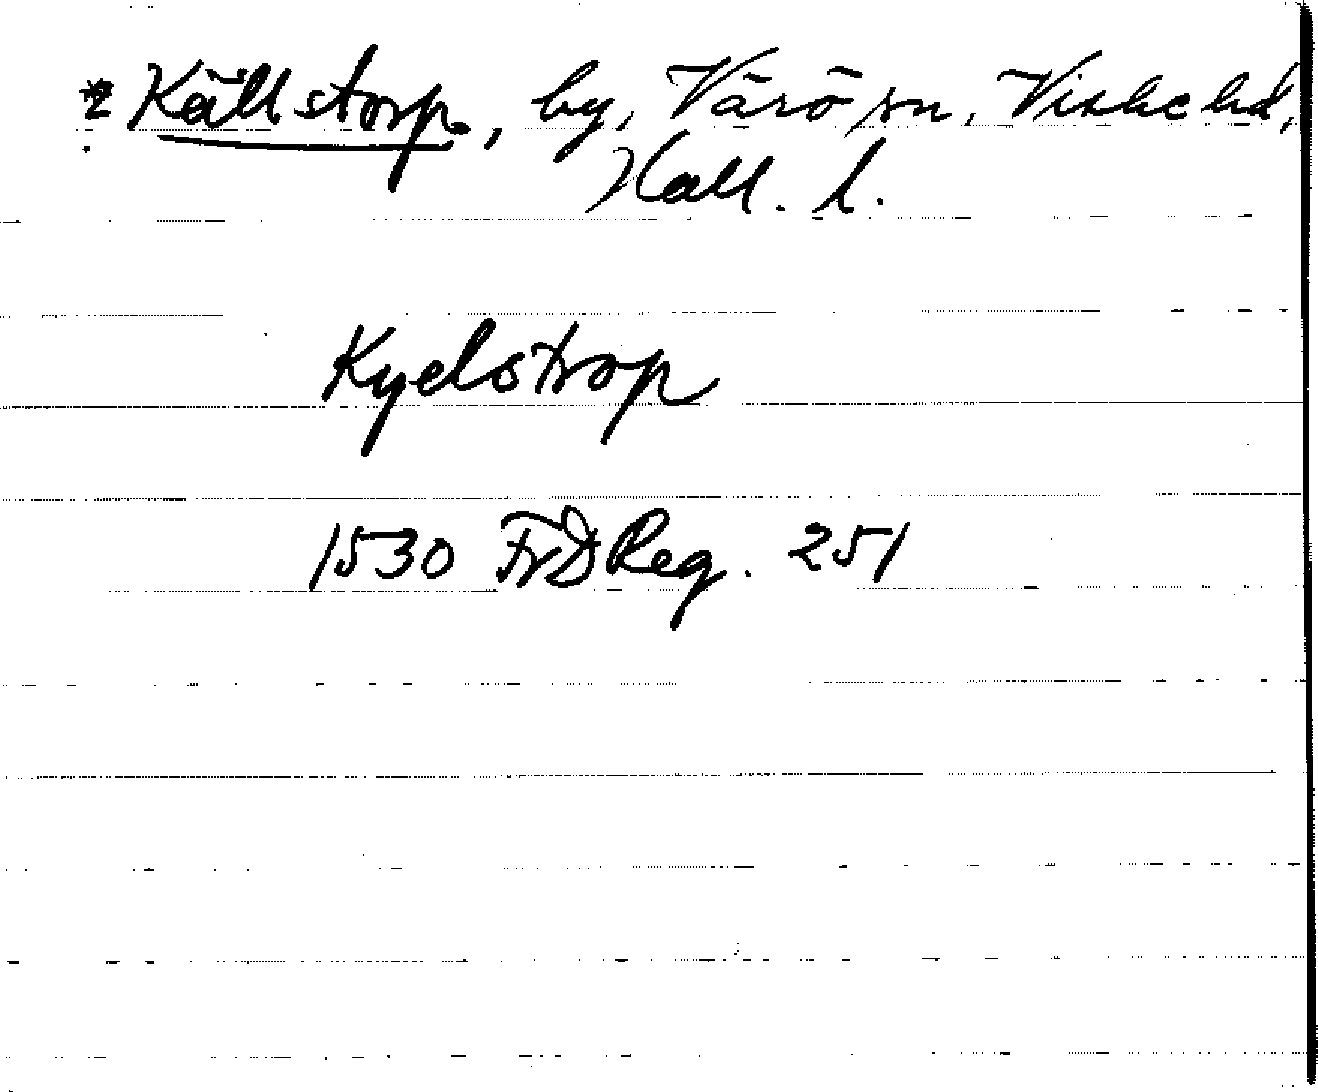 *2 Källstorp, by, Värö sn, Viske hd,
Hall. l.
Kyelstrop
1530 FrDReg. 251